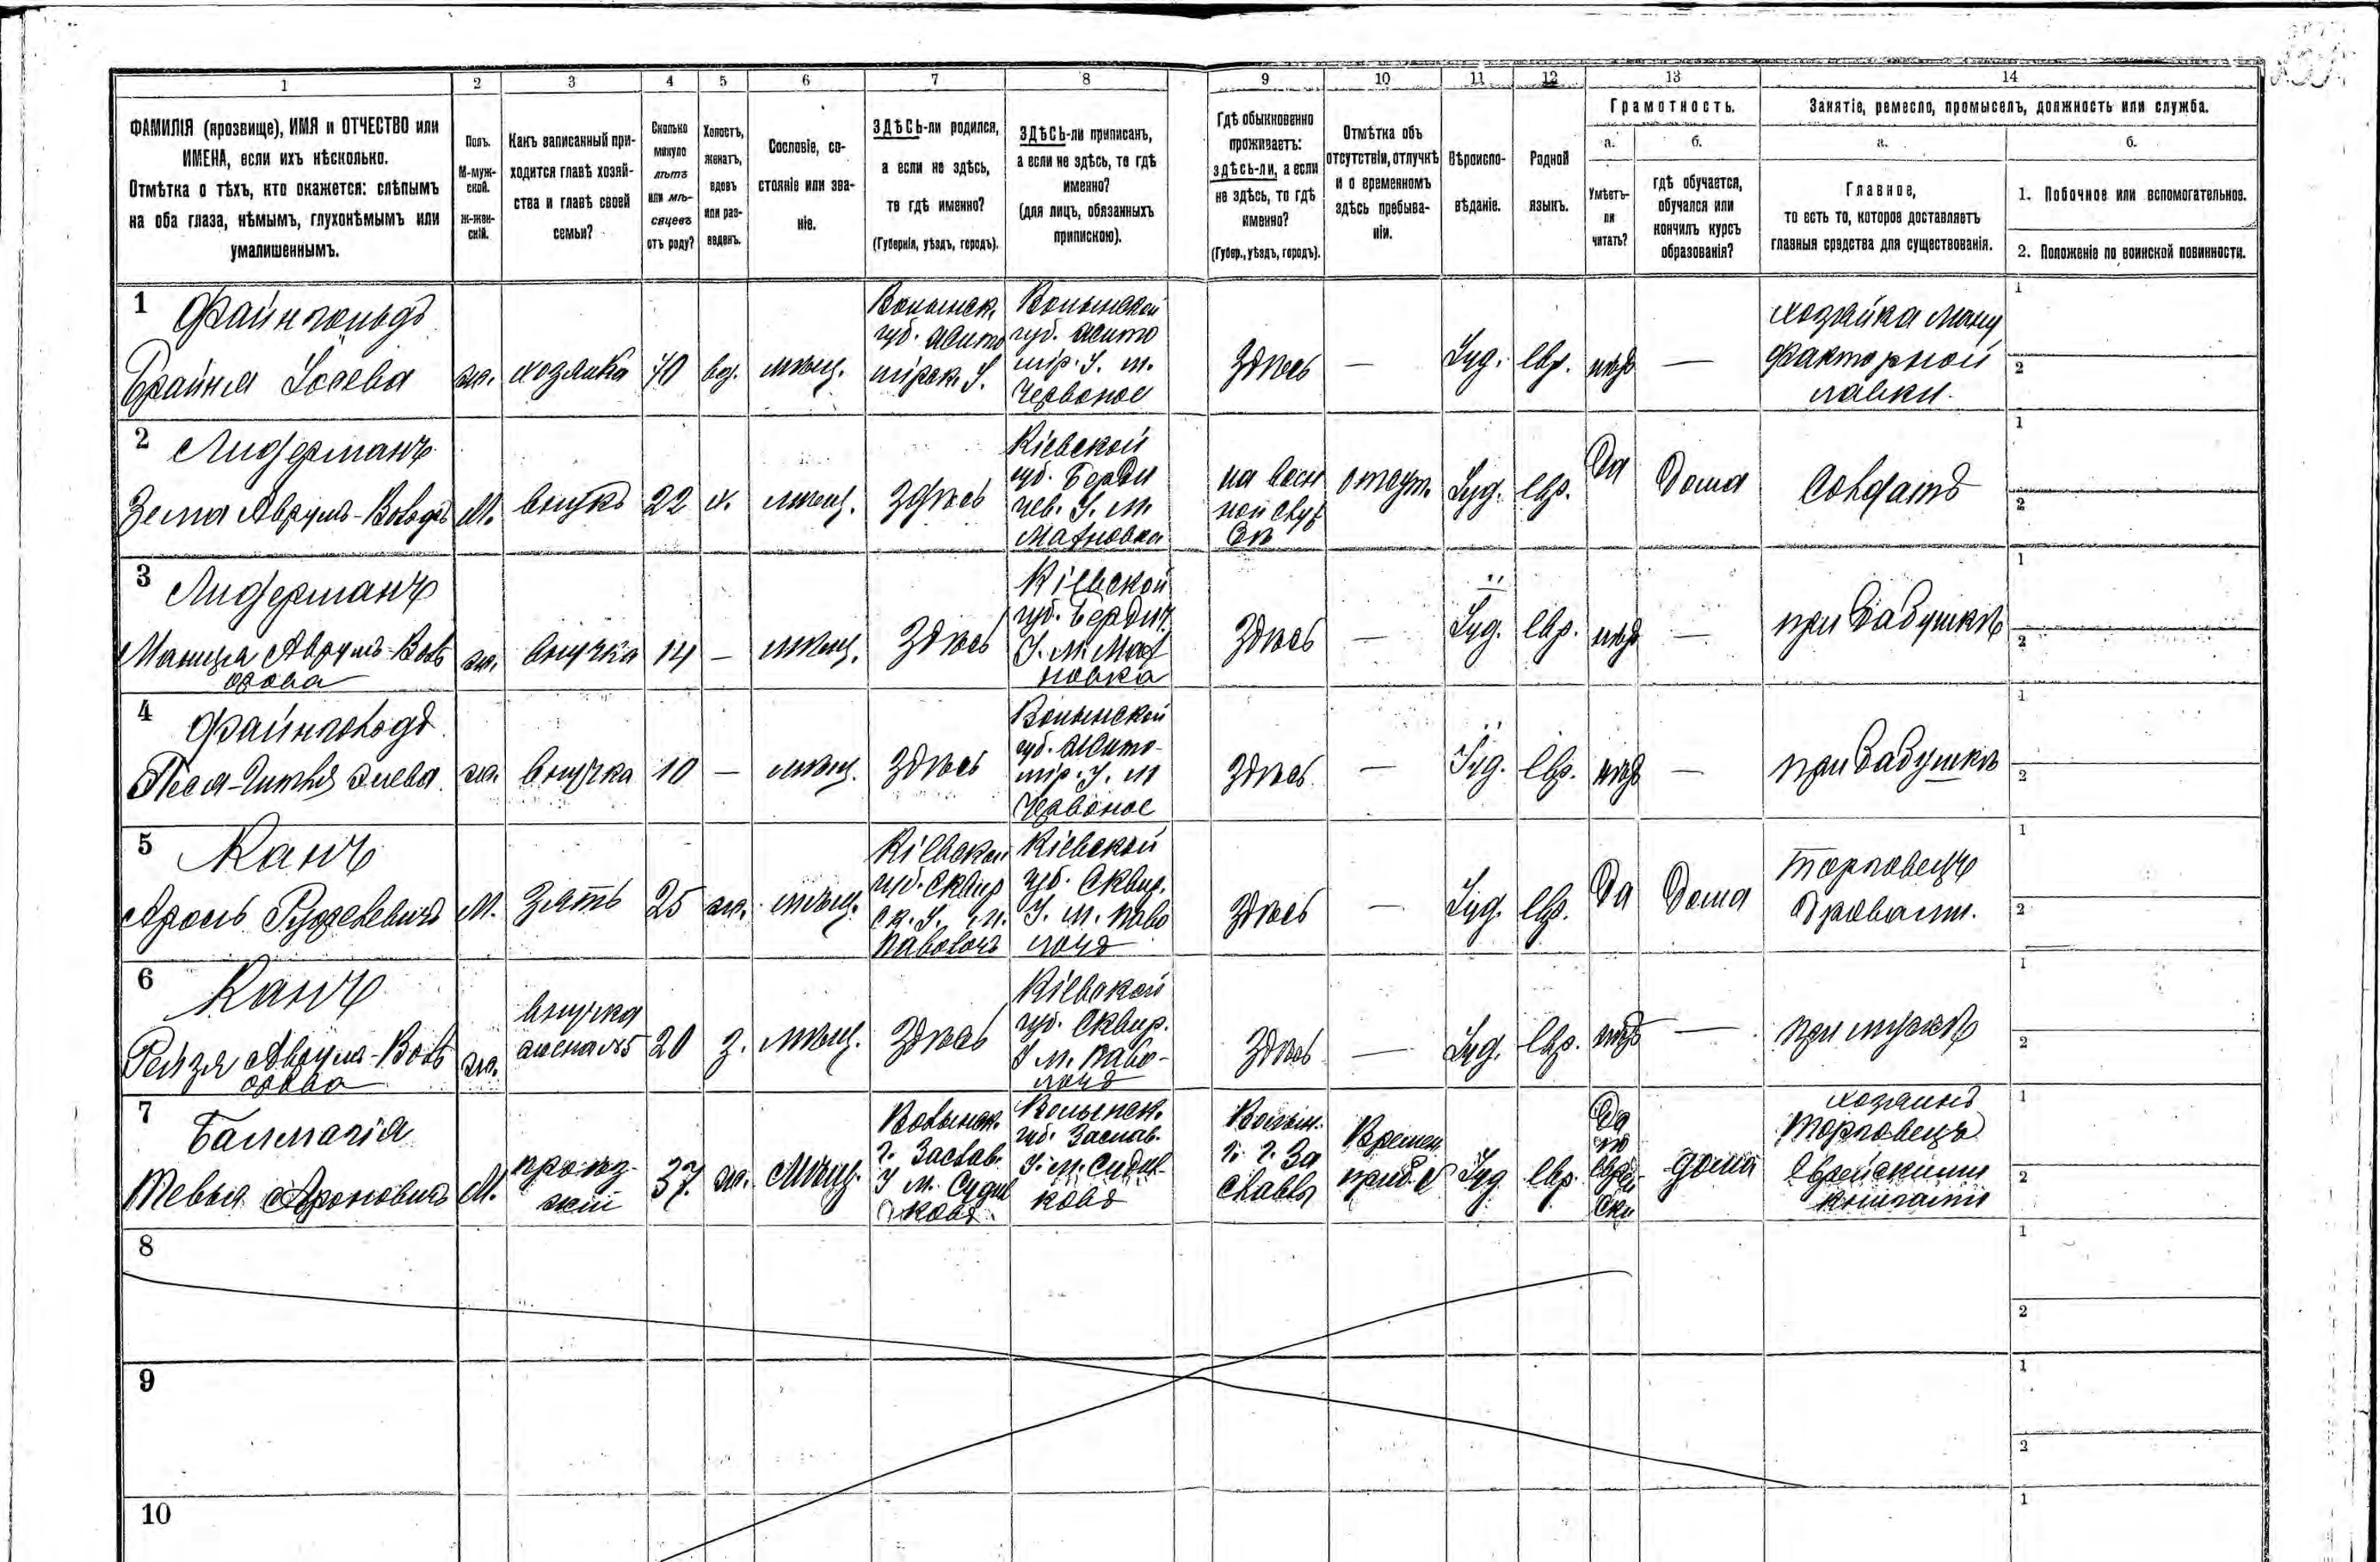 1 2 3 4 5 6 7 8 9 10 11 12 13 14
ФАМИЛІЯ (прозвище), ИМЯ и ОТЧЕСТВО или
ИМЕНА, если ихъ нѣсколько.
Отмѣтка о тѣхъ, кто окажется: слѣпымъ
на оба глаза, нѣмымъ, глухонѣмымъ или
умалишеннымъ.
Полъ.
М-муж-
ской.
ж-жен-
скій.
Какъ записанный при-
ходится главѣ хозяй-
ства и главѣ своей
семьи?
Сколько
минуло
лѣтъ
или мѣ-
сяцевъ
отъ роду?
Холостъ,
женатъ,
вдовъ
или раз-
веденъ.
Сословіе, со-
стояніе или зва-
ніе.
ЗДѢСЬ-ли родился,
а если не здѣсь,
то гдѣ именно?
(Губернія, уѣздъ, городъ).
ЗДѢСЬ-ли приписанъ,
а если не здѣсь, то гдѣ
именно?
(для лицъ, обязанныхъ
припискою).
Гдѣ обыкновенно
проживаетъ:
здѣсь-ли, а если
не здѣсь, то гдѣ
именно?
(Губер., уѣздъ, городъ).
Отмѣтка объ
отсутствіи, отлучкѣ
и о временномъ
здѣсь пребыва-
ніи.
Вѣроиспо-
вѣданіе.
Родной
языкъ.
Грамотность.
а.
Умѣетъ-
ли
читать?
б.
гдѣ обучается,
обучался или
кончилъ курсъ
образованія?
Занятіе, ремесло, промыселъ, должность или служба.
а.
Главное,
то есть то, которое доставляетъ
главныя средства для существованія.
б.
1. Побочное или вспомогательное.
2. Положеніе по воинской повинности.
1 Файнгольдъ
Брайна Іосева
ж.
хозяйка
70
вд.
мѣщ.
Волынск.
губ. Жито
мірск. У.
Волынской
губ. Жито
мір. У. м.
Червоное
Здѣсь
—
Іуд.
Евр.
нѣтъ
—
хозяйка ману
факторной
лавки.
1
2
2 Лидерманъ
Зелма Аврумъ-Вольдъ
М.
внукъ
22
х.
мѣщ.
Здѣсь
Кіевской
губ. Берди
чев. У. м.
Махновка
на воен
ной служ
бѣ
отсут.
Іуд.
Евр.
Да
Дома
Солдатъ
1
2
3 Лидерманъ
Маница Аврумъ-Воль
дова
ж.
внучка
14
—
мѣщ.
Здѣсь
Кіевской
губ. Бердич.
У. м. Мах
новка
Здѣсь
—
Іуд.
Евр.
нѣтъ
—
при бабушкѣ
1
2
4 Файнгольдъ
Песя-Гитля Элева
ж.
внучка
10
—
мѣщ.
Здѣсь
Волынской
губ. Жито-
мір. У. м
Червоное
Здѣсь
—
Іуд.
Евр.
нѣтъ
—
при бабушкѣ
1
2
5 Канъ
Аронъ
М.
Зять
25
ж.
мѣщ.
Кіевской
губ. Сквир
ск. У. м.
Паволочь
Кіевской
губ. Сквир.
У. м. Паво
лочь
Здѣсь
—
Іуд.
Евр.
Да
Дома
Торговецъ
дровами.
1
2
6 Канъ
Рейзя Аврума-Воль
дова
ж.
внучка
жена №5
20
з.
мѣщ.
Здѣсь
Кіевской
губ. Сквир.
У м. Паво-
лочь
Здѣсь
—
Іуд.
Евр.
нѣтъ
—
при мужѣ
1
2
7 Балмагія
Тевья Ароновичъ
М.
проѣз-
жій
37.
ж.
Мѣщ.
Волынск.
г. Заслав.
У м. Судил
ковъ.
Волынск.
губ. Заслав.
У. м. Судил-
ковъ
Волын.
г. г. За
славлъ
Времен.
преб.
Іуд
Евр.
Да
по
еврей-
ски
дома
хозяинъ
Торговецъ
Еврейскими
книгами
1
2
8
1
2
9
1
2
10
1